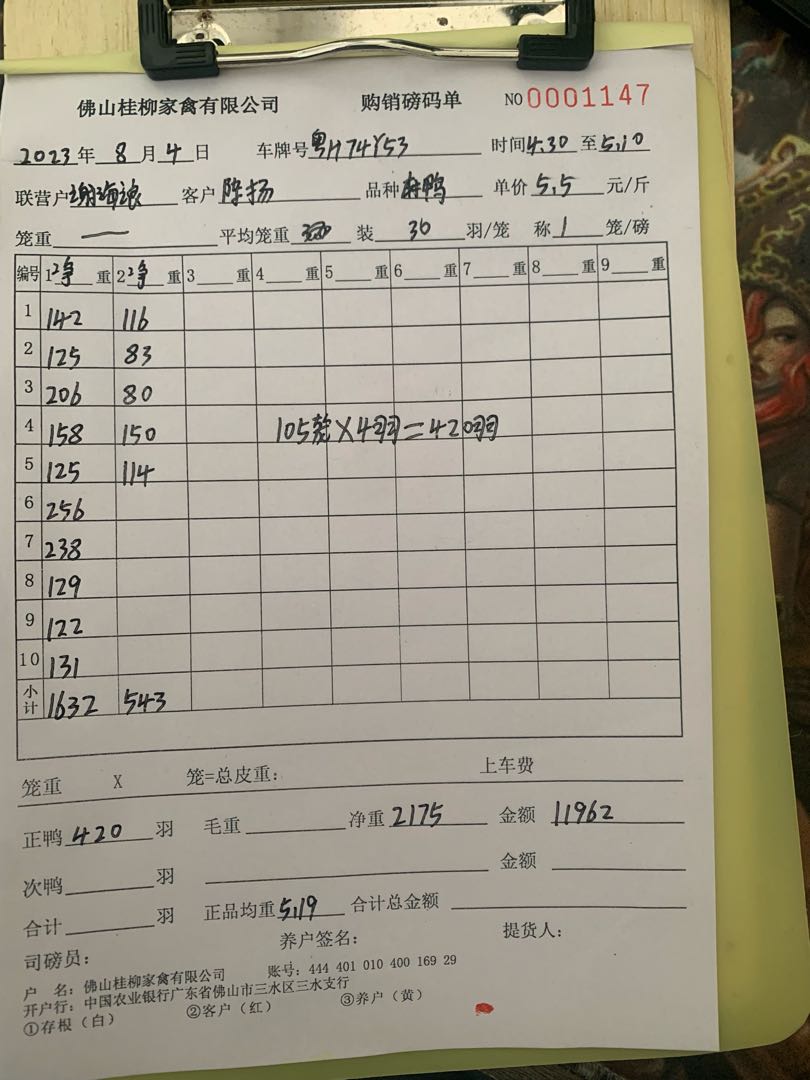 佛山桂柳家禽有限公司 购销磅码单 NO 0001147
2023年 8月 4日 车牌号粤H74Y53 时间4.30至5.10
联营户谢海浪 客户 陈扬 品种 麻鸭 单价 5.5 元/斤
笼重 一 平均笼重 装 30 羽/笼 称 1 笼/磅
编号 1净重 2净重 3 重 4 重 5 重 6 重 7 重 8 重 9 重
1 142 116
2 125 83
3 206 80
4 158 150 105笼×4羽=420羽
5 125 114
6 256
7 238
8 129
9 122
10 131
小计 1632 543
笼重 X 笼=总皮重: 上车费
正鸭 420 羽 毛重 净重 2175 金额 11962
次鸭 羽 金额
合计 羽 正品均重 5.19 合计总金额
司磅员: 养户签名: 提货人:
户 名: 佛山桂柳家禽有限公司 账号: 444 401 010 400 169 29
开户行: 中国农业银行广东省佛山市三水区三水支行
①存根(白) ②客户(红) ③养户(黄)